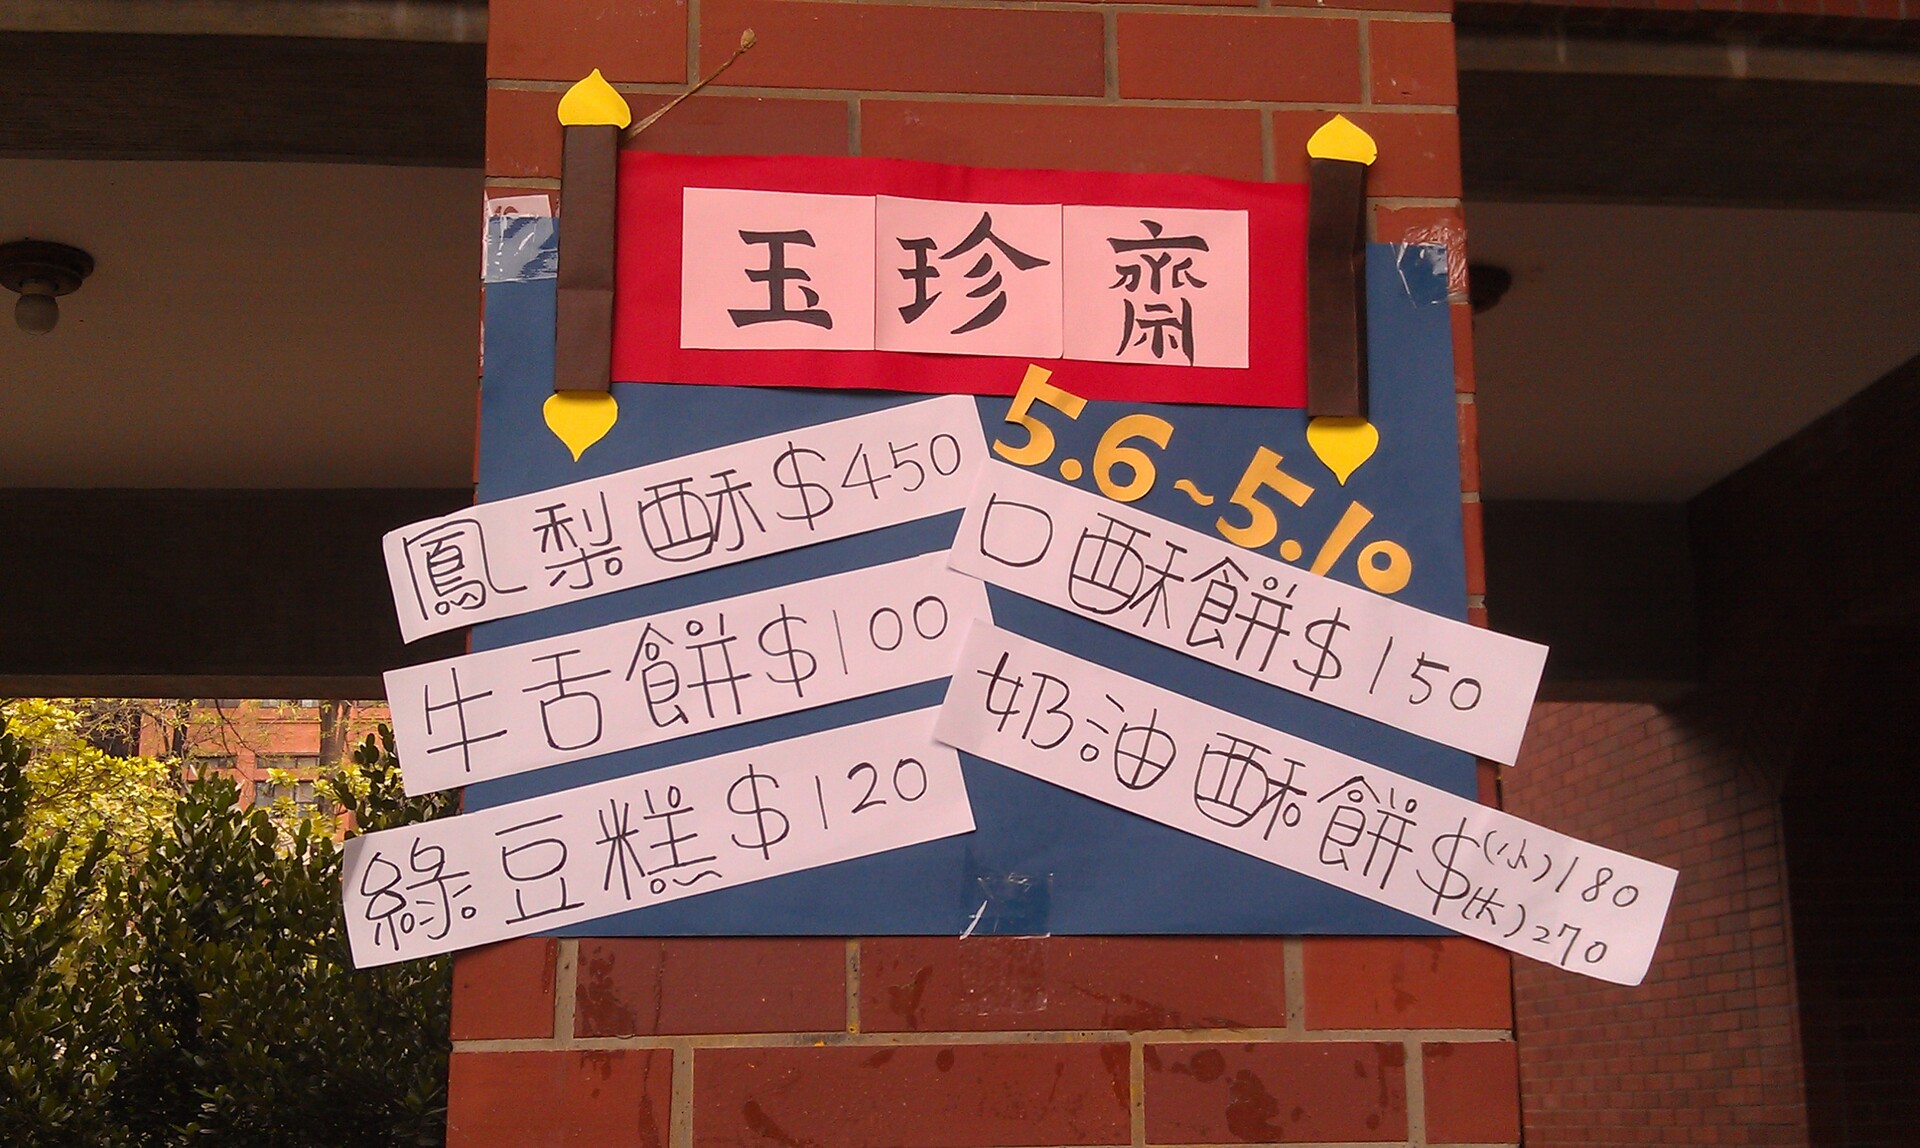 玉珍齋
5.6~5.10
鳳梨酥$450
牛舌餅$100
綠豆糕$120
口酥餅$150
奶油酥餅$(小)180
(大)270